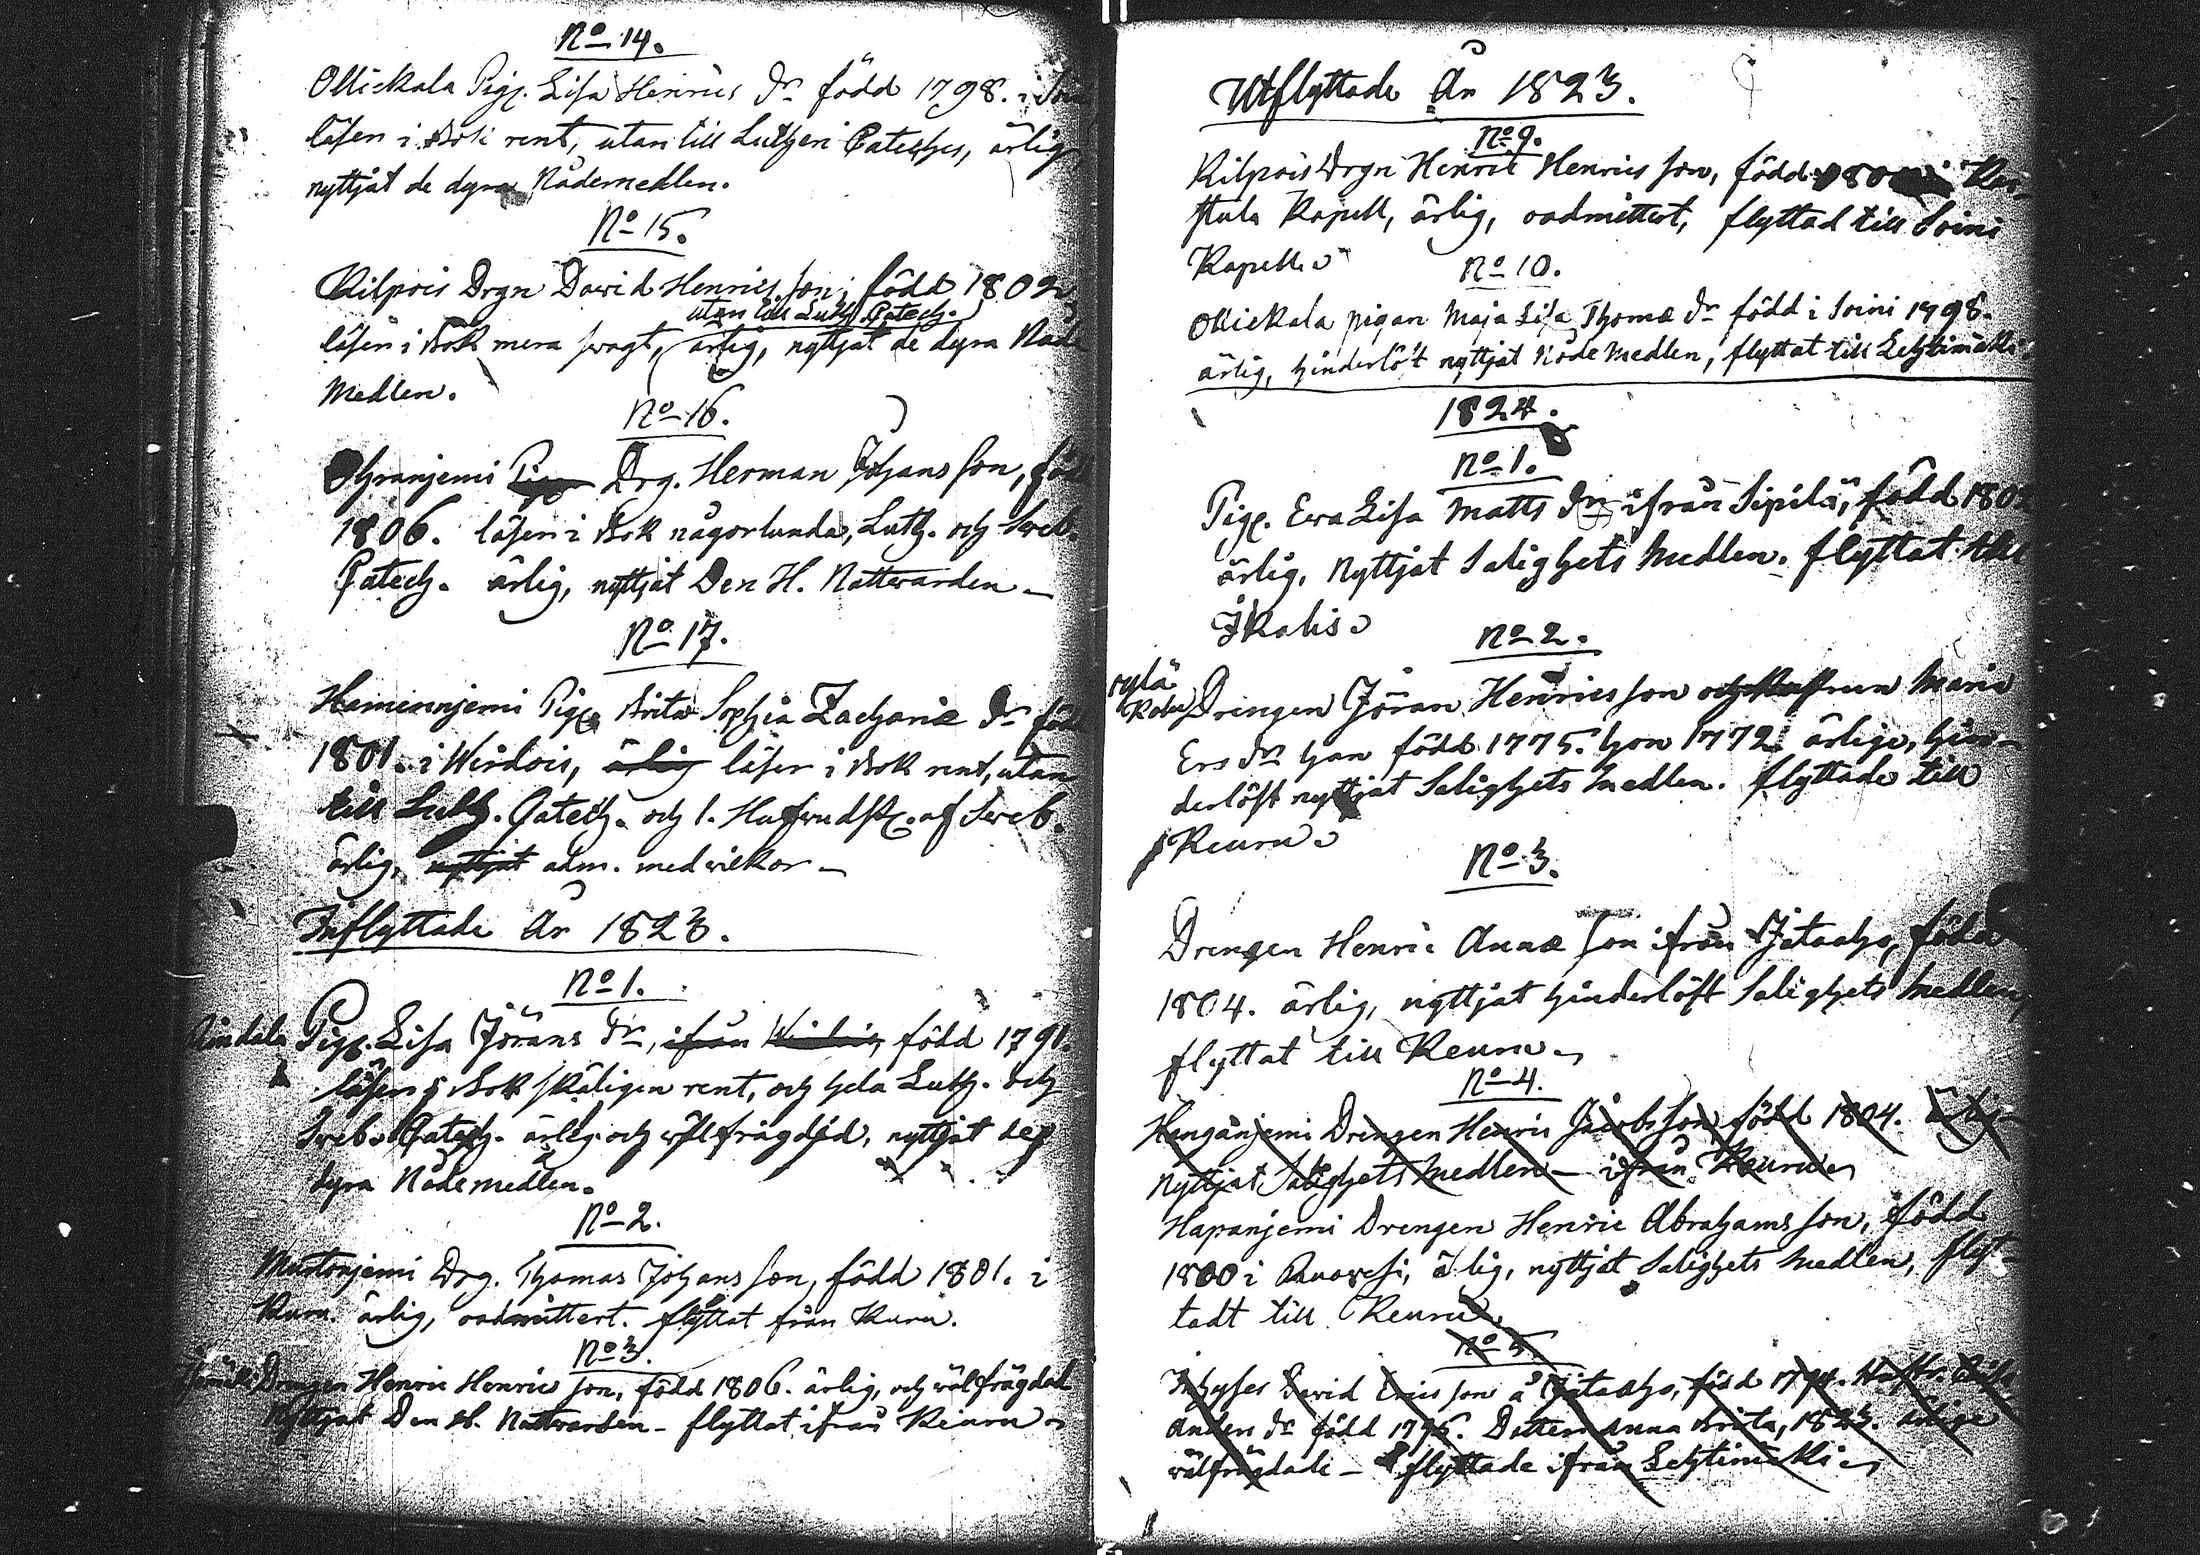 No 14.
Ollickala Pig. Lisa Henrics Dr född 1798. i Soini
läser i Bok rent, utan till Lutheri Cateches, ärlig,
nyttjat de dyra Nådemedlen.
No 15.
Kilpois Drgn David Henrics Son, född 1802
utan till Luth. Catech.
läser i Bok mera swagt, ärlig, nyttjat de dyra Nåde
Medlen.
No 16.
Ohranjemi Drg. Herman Johans Son, född
1806. läser i Bok någorlunda, Luth. och Sweb.
Catech. ärlig, nyttjat Den H. Nattwarden
No 17.
Haminnjemi Pig. Brita Sophia Zachariæ Dr född
1801. i Wirdois, ärlig läser i Bok rent, utan
till Luth. Catech. och 1. Hufwudst. af Sweb.
ärlig, nyttjat adm. med wilkor
Inflyttade År 1823.
No 1.
Pig. Lisa Jörans Dr, ifrån född 1791.
läser i Bok skäligen rent, och hela Luth. och
Sweb. Catech. ärlig och wälfrägdad, nyttjat de
dyra Nådemedlen.
No 2.
Mustonjemi Drg. Thomas Johans Son, född 1801. i
Kuru. ärlig, oadmittert. flyttat från Kuru.
No 3.
Drengen Henric Henrics Son, född 1806. ärlig, och wälfrägdad
Nyttjat Den H. Nattwarden - flyttat ifrån Keuru
Utflyttade År 1823.
No 9.
Kilpois Drgn Henric Henrics Son, född 180 i Kar-
stula Kapell, ärlig, oadmittert, flyttad till Soini
Kapell.
No 10.
Ollickala pigan Maja Lisa Thomæ Dr född i Soini 1798.
ärlig, hinderlöst nyttjat Nåde Medlen, flyttat till Lehtimäki
1824.
No 1.
Pig. Ewa Lisa Matts Dr ifrån Sipilä, född 180
ärlig, Nyttjat Salighets Medlen. flyttat till
Ikalis
No 2.
Drengen Jöran Henricsson och Hustrun Maria
Ers Dr han född 1775. hon 1772. ärlige, hin-
derlöst nyttjat Salighets Medlen. flyttade till
Keuru
No 3.
Drengen Henric Annæ Son ifrån Jätaaho, född
1804. ärlig, nyttjat hinderlöst Salighets Medlen,
flyttat till Keuru
No 4.
Hengänjemi Drengen Henric Jacobs Son född 1804. ärlig
Nyttjat Salighets Medlen - ifrån Keuru
Hapanjemi Drengen Henric Abrahams Son, född
1800 i Ruovesi, ärlig, nyttjat Salighets Medlen, flyt-
tadt till Keuru
No 5.
Inhyses David Erics Son å Jätaaho, född Hustr.
Anders Dr född 1795. Dotter Anna Brita, 1823. ärlige
wälfrägdade - flyttade ifrån Lehtimäki